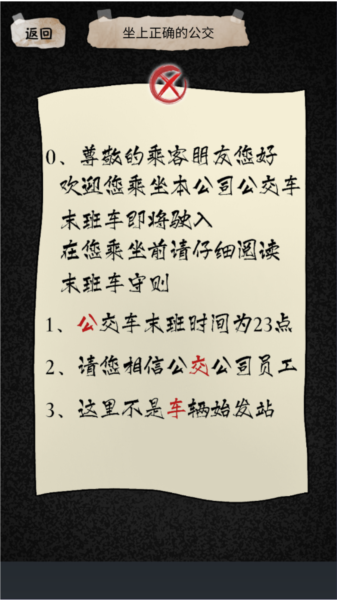 返回
坐上正确的公交
0、尊敬的乘客朋友您好
欢迎您乘坐本公司公交车
末班车即将驶入
在您乘坐前请仔细阅读
末班车守则
1、公交车末班时间为23点
2、请您相信公交公司员工
3、这里不是车辆始发站